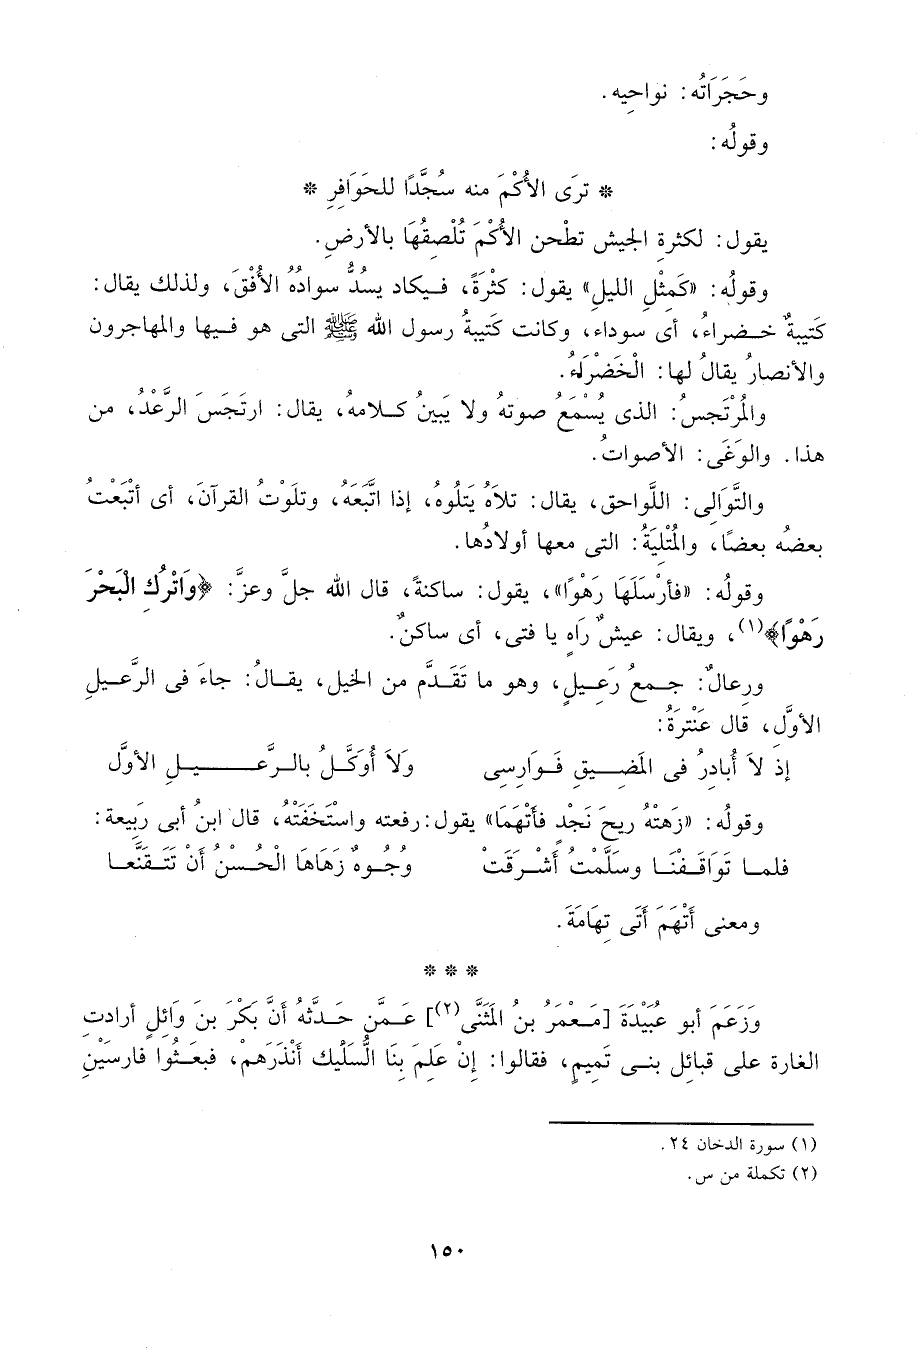 وحَجَرَاتُه: نواحيه.
وقولُه:
* ترَى الأُكْمَ منه سُجَّدًا للحَوَافِرِ *
يقول: لكثرةِ الجيش تطْحن الأُكْمَ تُلْصِقُهَا بالأرضِ.
وقولُه: «كَمثْلِ الليلِ» يقول: كثْرَةً، فيكاد يسدُّ سوادُهُ الأُفْقَ، ولذلك يقال:
كَتيبةٌ خضراءُ، أى سوداء، وكانت كَتيبةُ رسول الله ﷺ التى هو فيها والمهاجرون
والأنصارُ يقالُ لها: الْخَضْرَاءُ.
والمُرْتَجسُ: الذى يُسْمَعُ صوتهُ ولا يَبينُ كلامهُ، يقال: ارتَجسَ الرَّعْدُ، من
هذا. والوَغَى: الأصواتُ.
والتَّوَالِى: اللَّواحق، يقال: تلاَهُ يَتْلُوه، إذا اتَّبَعَهُ، وتلَوْتُ القرآنَ، أى أتْبَعْتُ
بعضهُ بعضًا، والمُتْلِيَةُ: التى معها أولادُها.
وقولُه: «فأرْسَلَهَا رَهْوًا»، يقول: ساكنةً، قال الله جلَّ وعزَّ: ﴿وَاتْرُكِ الْبَحْرَ
رَهْوًا﴾(١)، ويقال: عيشٌ رَاهٍ يا فتى، أى ساكنٌ.
ورعالٌ: جمعُ رَعِيلٍ، وهو ما تَقَدَّم من الخيل، يقالُ: جاءَ فى الرَّعيلِ
الأوَّلِ، قال عَنْترَةُ:
إذ لاَ أُبادرُ فى المَضيقِ فَوارِسِى ولاَ أُوَكَّلُ بالرَّعيلِ الأوَّل
وقولُه: «زَهتْهُ ريحُ نَجْدٍ فأَتْهَمَا» يقول: رفعته واستَخَفَتْهُ، قال ابنُ أبى ربَيعة:
فلما تَوَاقَفْنَا وسلَّمْتُ أَشْرقَتْ وُجُوهٌ زَهَاهَا الْحُسْنُ أنْ تَتَقَنَّعا
ومعنى أَتْهَمَ أَتَى تِهَامَةَ.
* * *
وَزَعَمَ أبو عُبَيْدَةَ [مَعْمَرُ بنُ المثَنَّى(٢)] عَمَّن حَدَّثهُ أنَّ بَكْرَ بنَ وَائلٍ أرادتِ
الغارة على قبائل بنى تَميمٍ، فقالوا: إنْ عَلِمَ بنَا السُّلَيْك أنْذَرَهمْ، فبعَثُوا فارسَيْنِ
(١) سورة الدخان ٢٤.
(٢) تكملة من س.
١٥٠